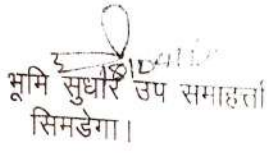 भूमि सुधार उप समाहर्ता
सिमडेगा।